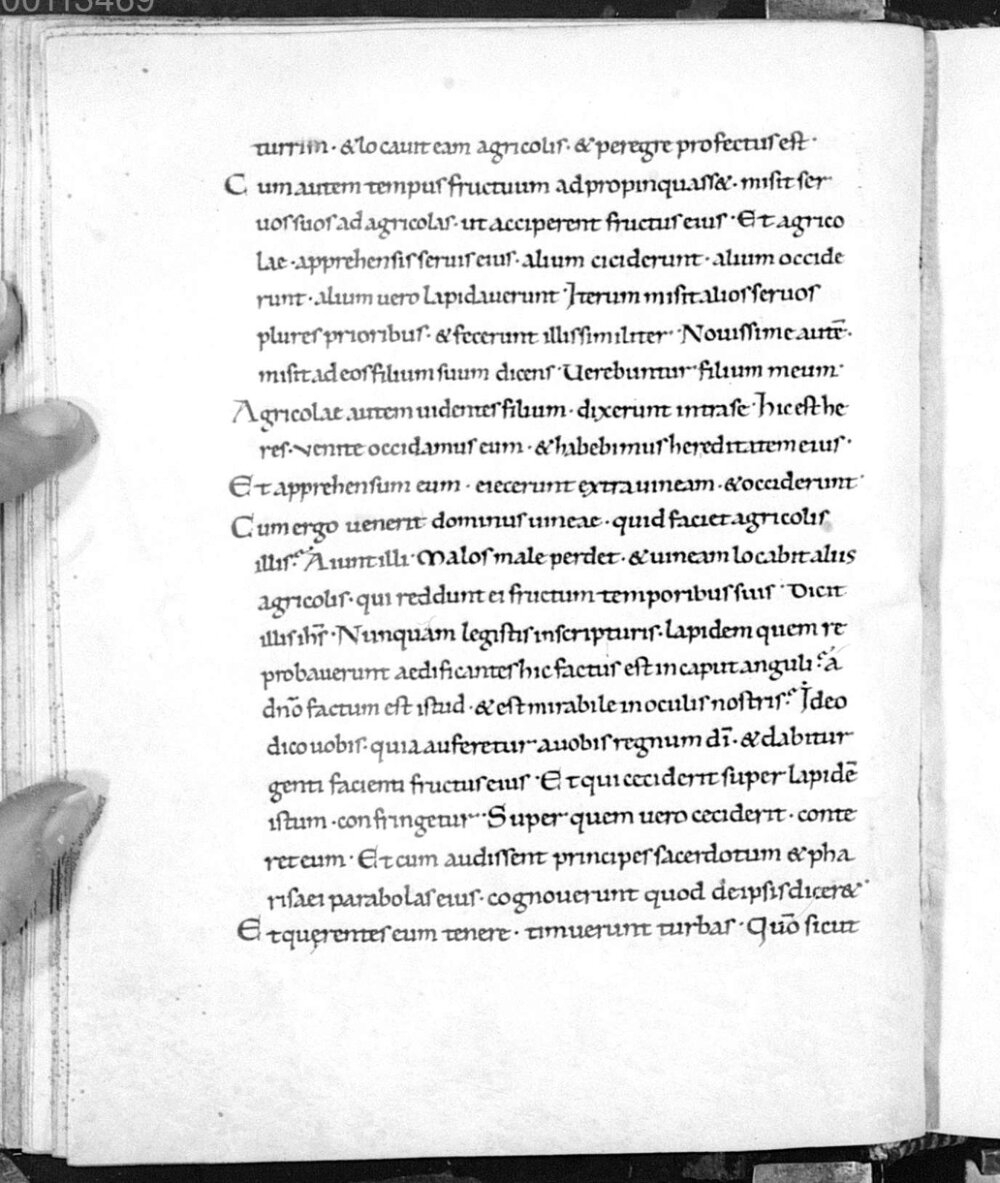 00113489
turrim · & locauit eam agricolis · & peregre profectus est ·
Cum autem tempus fructuum adpropinquass& · misit ser
uos suos ad agricolas · ut acciperent fructus eius · Et agrico
lae · apprehensis seruis eius · alium ciciderunt · alium occide
runt · alium uero lapidauerunt · Iterum misit alios seruos
plures prioribus · & fecerunt illis similiter · Nouissime autē ·
misit ad eos filium suum dicens · Uerebuntur filium meum ·
Agricolae autem uidentes filium · dixerunt intra se · hic est he
res · venite occidamus eum · & habebimus hereditatem eius ·
Et apprehensum eum · eiecerunt extra uineam · & occiderunt ·
Cum ergo uenerit dominus uineae · quid faciet agricolis
illis? Aiunt illi · Malos male perdet · & uineam locabit aliis
agricolis · qui reddunt ei fructum temporibus suis · Dicit
illis ihs̄ · Nunquam legistis in scripturis · lapidem quem re
probauerunt aedificantes hic factus est in caput anguli? a
dnō factum est istud · & est mirabile in oculis nostris? Ideo
dico uobis · quia auferetur a uobis regnum dī · & dabitur
genti facienti fructus eius · Et qui ceciderit super lapidē
istum · confringetur · Super quem uero ceciderit · conte
ret eum · Et cum audissent principes sacerdotum & pha
risaei parabolas eius · cognouerunt quod de ipsis dicer& ·
Et quęrentes eum tenere · timuerunt turbas · Quō sicut